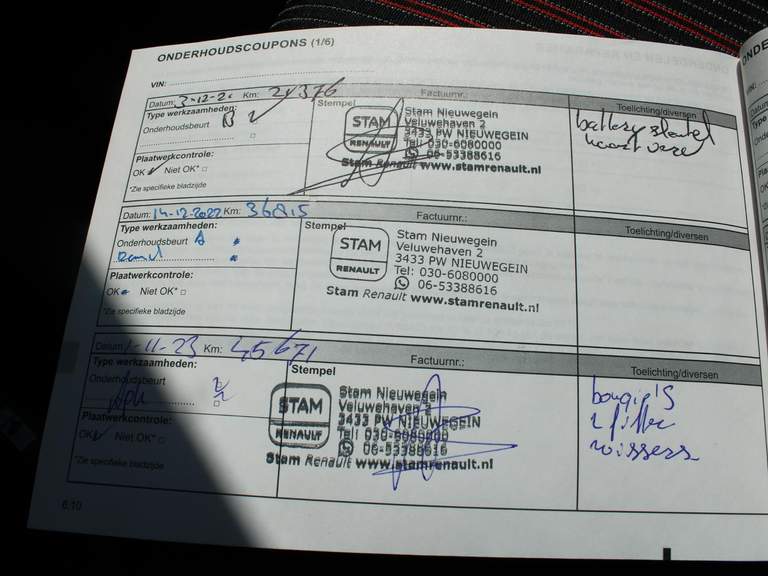 ONDERHOUDSCOUPONS (1/6)
VIN:
Datum: 3-12-2 Km: 24376
Factuurnr.:
Toelichting/diversen
Type werkzaamheden:
Onderhoudsbeurt B
Stempel
STAM
RENAULT
Stam Nieuwegein
Veluwehaven 2
3433 PW NIEUWEGEIN
Tel: 030-6080000
06-53388616
Stam Renault www.stamrenault.nl
battery sleutel
Plaatwerkcontrole:
OK Niet OK* □
*Zie specifieke bladzijde
Datum: 14-12-2022 Km: 36815
Factuurnr.:
Toelichting/diversen
Type werkzaamheden:
Onderhoudsbeurt A
Stempel
STAM
RENAULT
Stam Nieuwegein
Veluwehaven 2
3433 PW NIEUWEGEIN
Tel: 030-6080000
06-53388616
Stam Renault www.stamrenault.nl
Plaatwerkcontrole:
OK Niet OK* □
*Zie specifieke bladzijde
Datum: 1-11-23 Km: 45671
Factuurnr.:
Toelichting/diversen
Type werkzaamheden:
Onderhoudsbeurt
Stempel
STAM
RENAULT
Stam Nieuwegein
Veluwehaven 2
3433 PW NIEUWEGEIN
Tel: 030-6080000
06-53388616
Stam Renault www.stamrenault.nl
bougie's
filter
wissers
Plaatwerkcontrole:
OK Niet OK* □
*Zie specifieke bladzijde
6.10